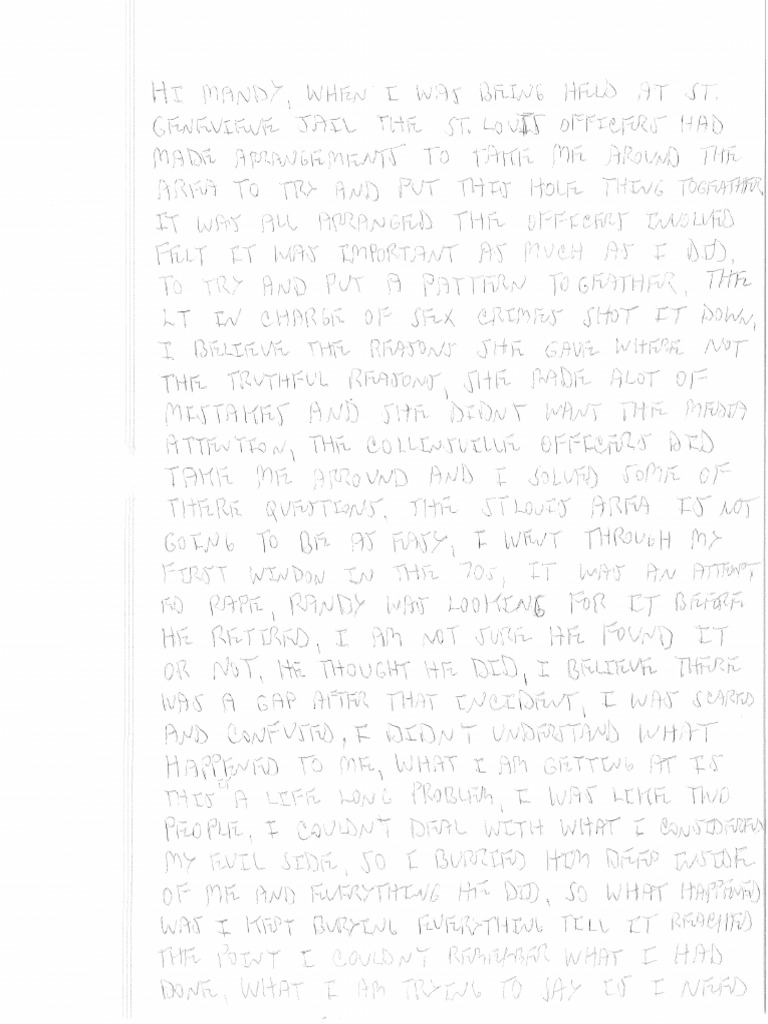 HI MANDY, WHEN I WAS BEING HELD AT ST.
GENEVIEWE JAIL THE ST. LOUIS OFFICERS HAD
MADE ARRANGEMENTS TO TAKE ME AROUND THE
AREA TO TRY AND PUT THIS HOLE THING TOGEATHER
IT WAS ALL ARRANGED THE OFFICERS INVOLVED
FELT IT WAS IMPORTANT AS MUCH AS I DID,
TO TRY AND PUT A PATTERN TOGEATHER, THE
LT IN CHARGE OF SEX CRIMES SHOT IT DOWN,
I BELIEVE THE REASONS SHE GAVE WHERE NOT
THE TRUTHFUL REASONS, SHE MADE ALOT OF
MISTAKES AND SHE DIDNT WANT THE MEDIA
ATTENTION, THE COLLINSVILLE OFFICERS DID
TAKE ME ARROUND AND I SOLVED SOME OF
THERE QUESTIONS. THE STLOUIS AREA IS NOT
GOING TO BE AS EASY, I WENT THROUGH MY
FIRST WINDOW IN THE 70S, IT WAS AN ATTEMPT
ED RAPE, RANDY WAS LOOKING FOR IT BEFORE
HE RETIRED, I AM NOT SURE HE FOUND IT
OR NOT, HE THOUGHT HE DID, I BELIEVE THERE
WAS A GAP AFTER THAT INCIDENT, I WAS SCARED
AND CONFUSED, I DIDN'T UNDERSTAND WHAT
HAPPENED TO ME, WHAT I AM GETTING AT IS
THIS IS A LIFE LONG PROBLEM, I WAS LIKE TWO
PEOPLE, I COULDN'T DEAL WITH WHAT I CONSIDERED
MY EVIL SIDE, SO I BURRIED HIM DEEP INSIDE
OF ME AND EVERYTHING HE DID, SO WHAT HAPPENED
WAS I KEPT BURYING EVERYTHING TILL IT REACHED
THE POINT I COULDN'T REMEMBER WHAT I HAD
DONE, WHAT I AM TRYING TO SAY IS I NEED